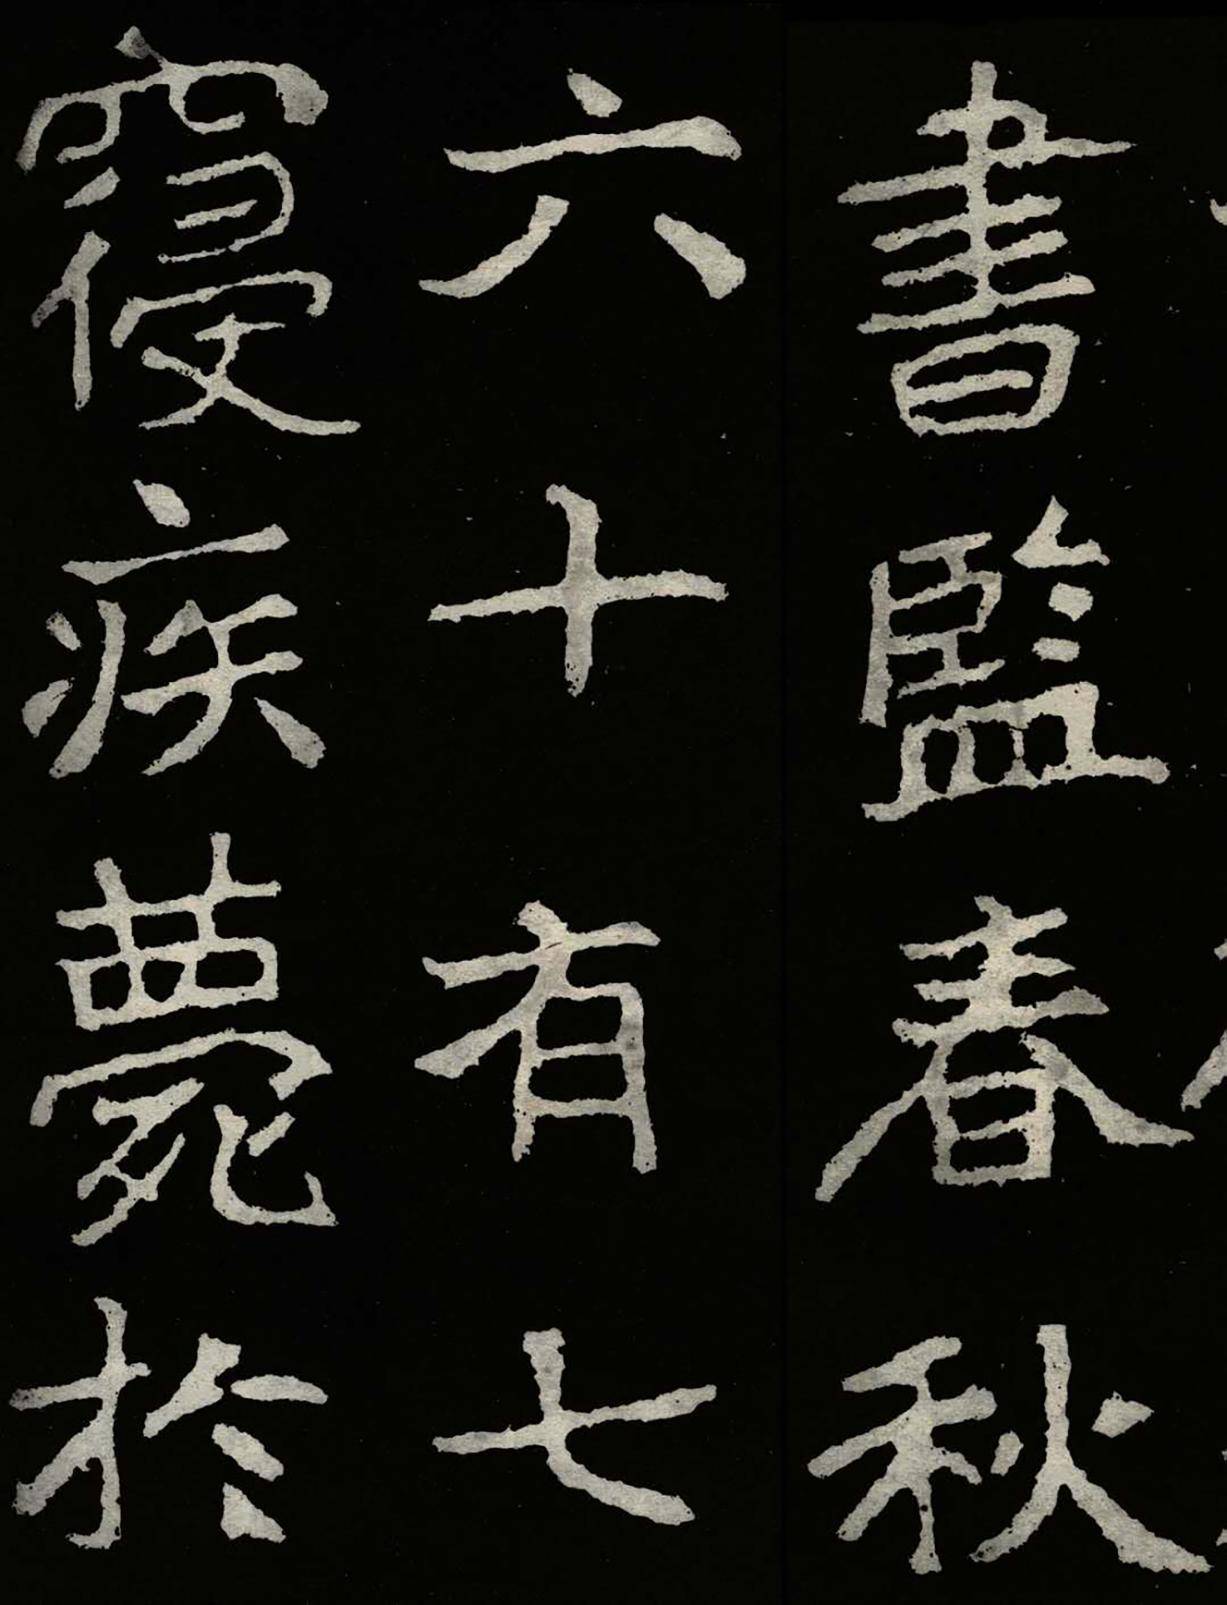 書監春秋
六十有七
寑疾薨於